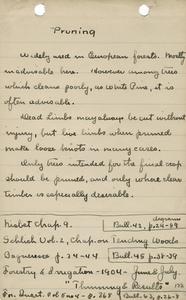 Pruning
Widely used in European forests. Mostly
inadvisable here. However among trees
which cleans poorly, as White Pine, it is
often advisable.
Dead limbs may always be cut without
injury, but live limbs where pruned
make loose knots in many cases.
Only trees intended for the final crop
should be pruned, and only where clear
timber is especially desirable.
diagrams
Nisbet Chap. 9. Bull. 42, p.24-89
Schlich Vol. 2, Chap. on Tending Woods
Bagneris p. 24-44 Bull. 45 p 38-39
Forestry & Irrigation - 1904 - June & July.
"Thinning & Results" 173
For. Quart. Vol p. 268 Bull. p.